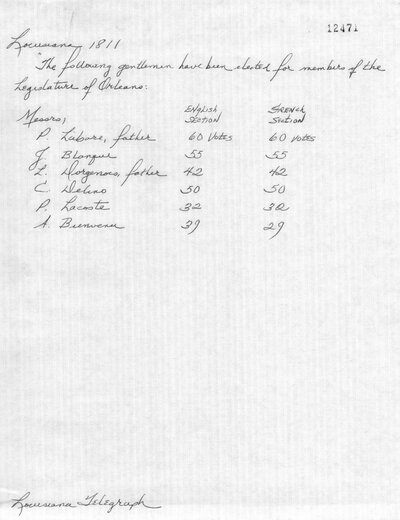 12471
Louisiana 1811
"The following gentlemen have been elected for members of the
Legislature of Orleans:
Messrs, English Section French Section
P. Labore, father 60 Votes 60 Votes
J. Blanque 55 55
L. Dorgenois, father 42 42
C. Delino 50 50
P. Lacoste 32 32
A. Bienvenu 39 29
Louisiana Telegraph